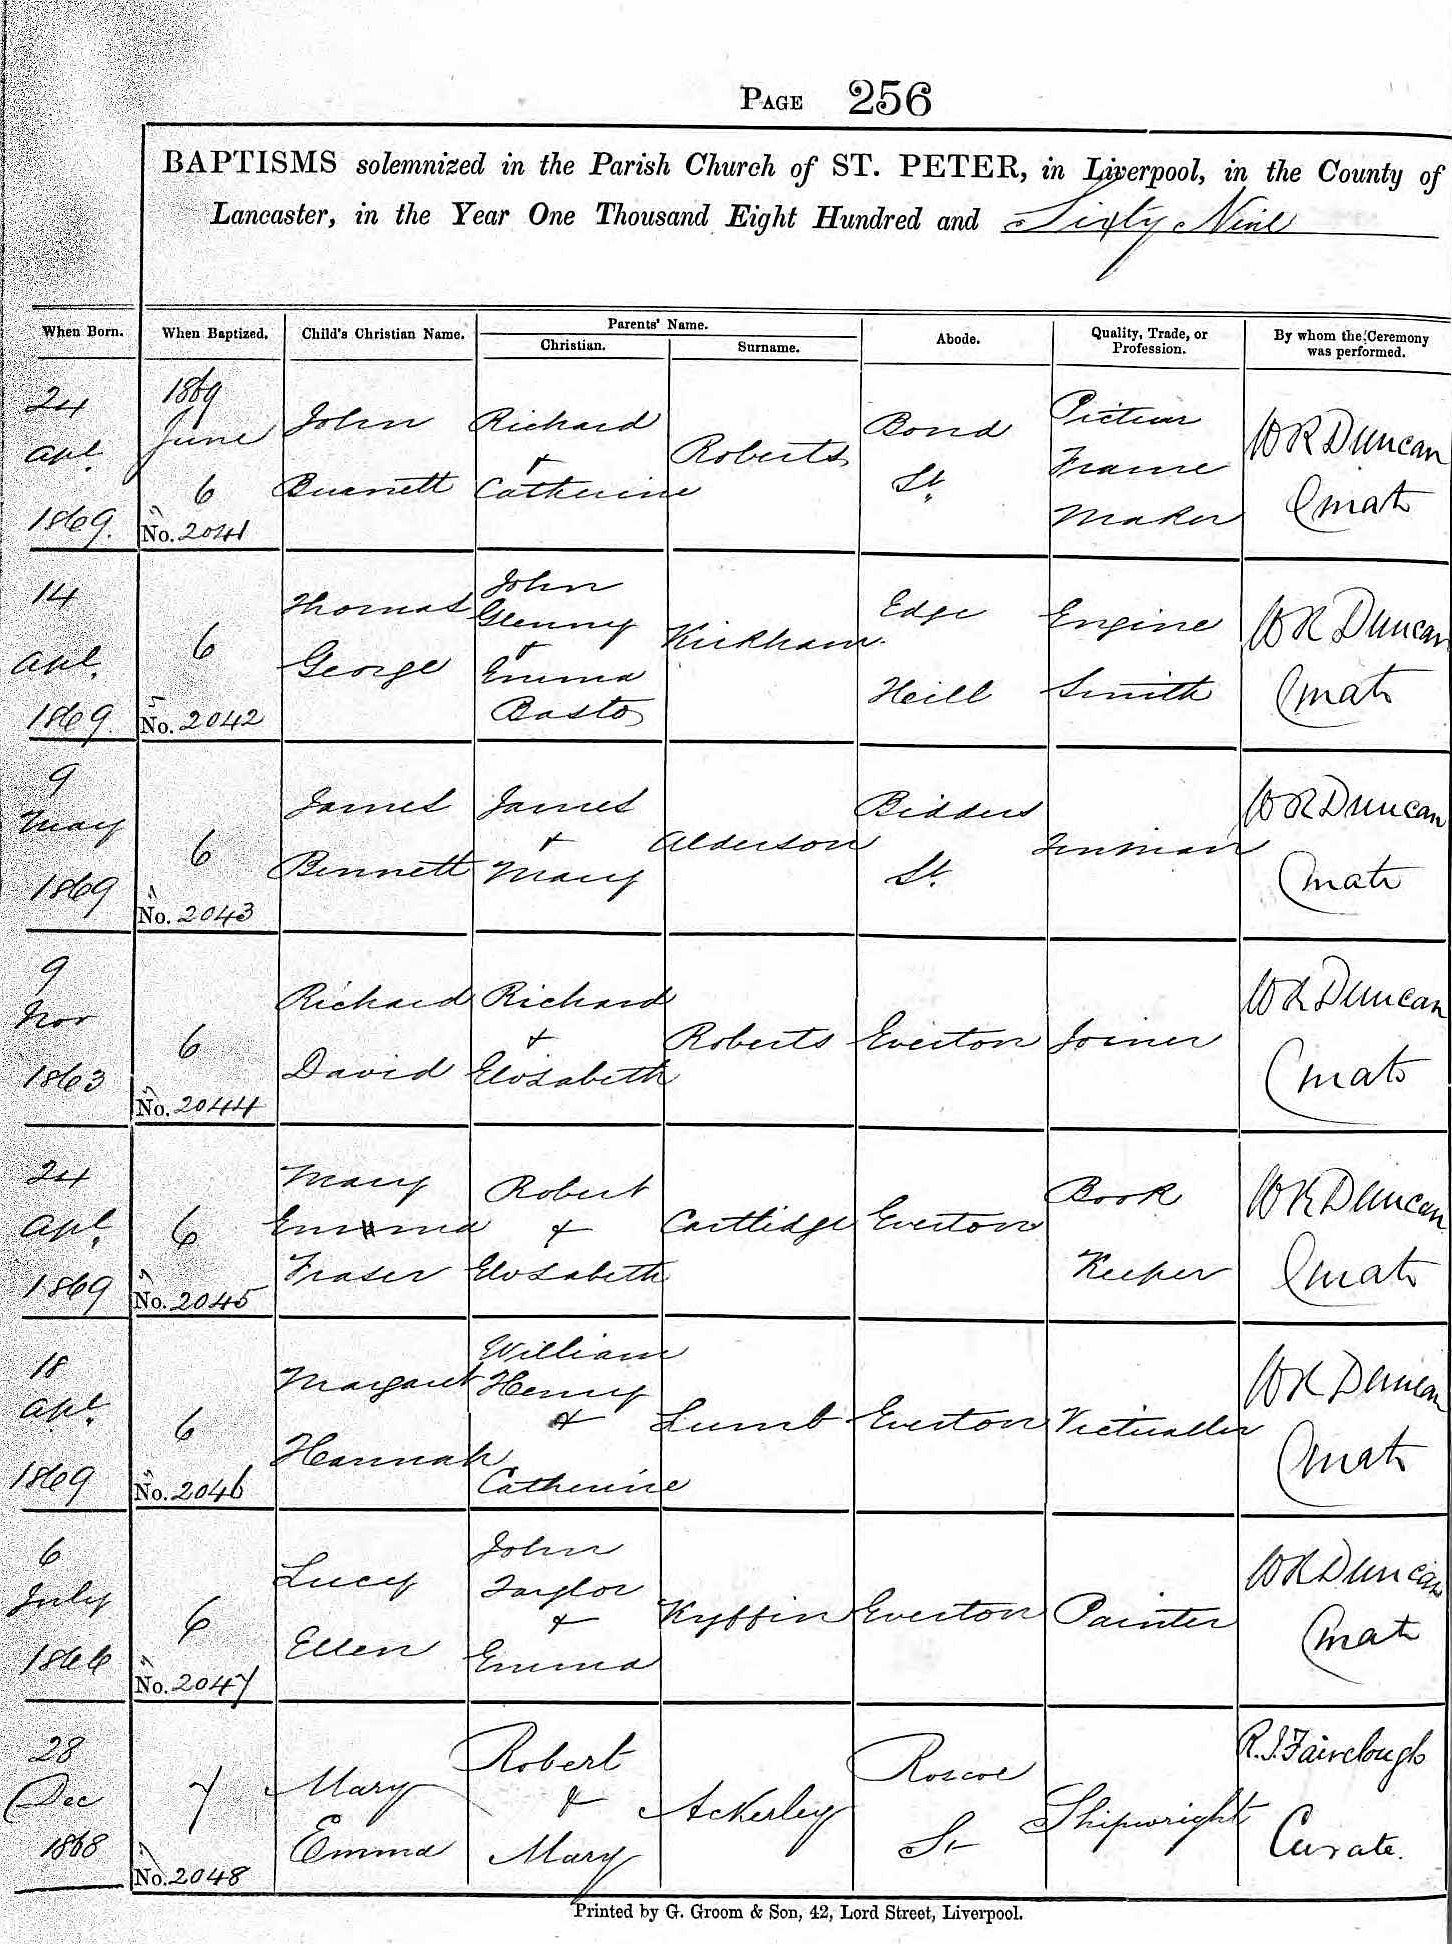 PAGE 256
BAPTISMS solemnized in the Parish Church of ST. PETER, in Liverpool, in the County of
Lancaster, in the Year One Thousand Eight Hundred and Sixty Nine
When Born.
When Baptized.
Child's Christian Name.
Parents' Name.
Christian.
Surname.
Abode.
Quality, Trade, or
Profession.
By whom the Ceremony
was performed.
24
Apl.
1869.
1869
June
6
No. 2041
John
Burnett
Richard
+
Catherine
Roberts
Bond
St.
Picture
Frame
Maker
W R Duncan
Curate
14
Apl.
1869
6
No. 2042
Thomas
George
John
Glenny
+
Emma
Basto
Kirkham
Edge
Heill
Engine
Smith
W R Duncan
Curate
9
May
1869
6
No. 2043
James
Bennett
James
+
Mary
Alderson
Bidders
St.
W R Duncan
Curate
9
Nov
1863
6
No. 2044
Richard
David
Richard
+
Elisabeth
Roberts
Everton
Joiner
W R Duncan
Curate
24
Apl.
1869
6
No. 2045
Mary
Emma
Fraser
Robert
+
Elisabeth
Cartlidge
Everton
Book
Keeper
W R Duncan
Curate
18
Apl.
1869
6
No. 2046
Margaret
Hannah
William
Henry
+
Catherine
Lumb
Everton
Victualler
W R Duncan
Curate
6
July
1866
6
No. 2047
Lucy
Ellen
John
Taylor
+
Emma
Kyffin
Everton
Painter
W R Duncan
Curate
28
Dec
1868
7
No. 2048
Mary
Emma
Robert
&
Mary
Ackerley
Roscoe
St
Shipwright
R. J. Fairclough
Curate.
Printed by G. Groom & Son, 42, Lord Street, Liverpool.